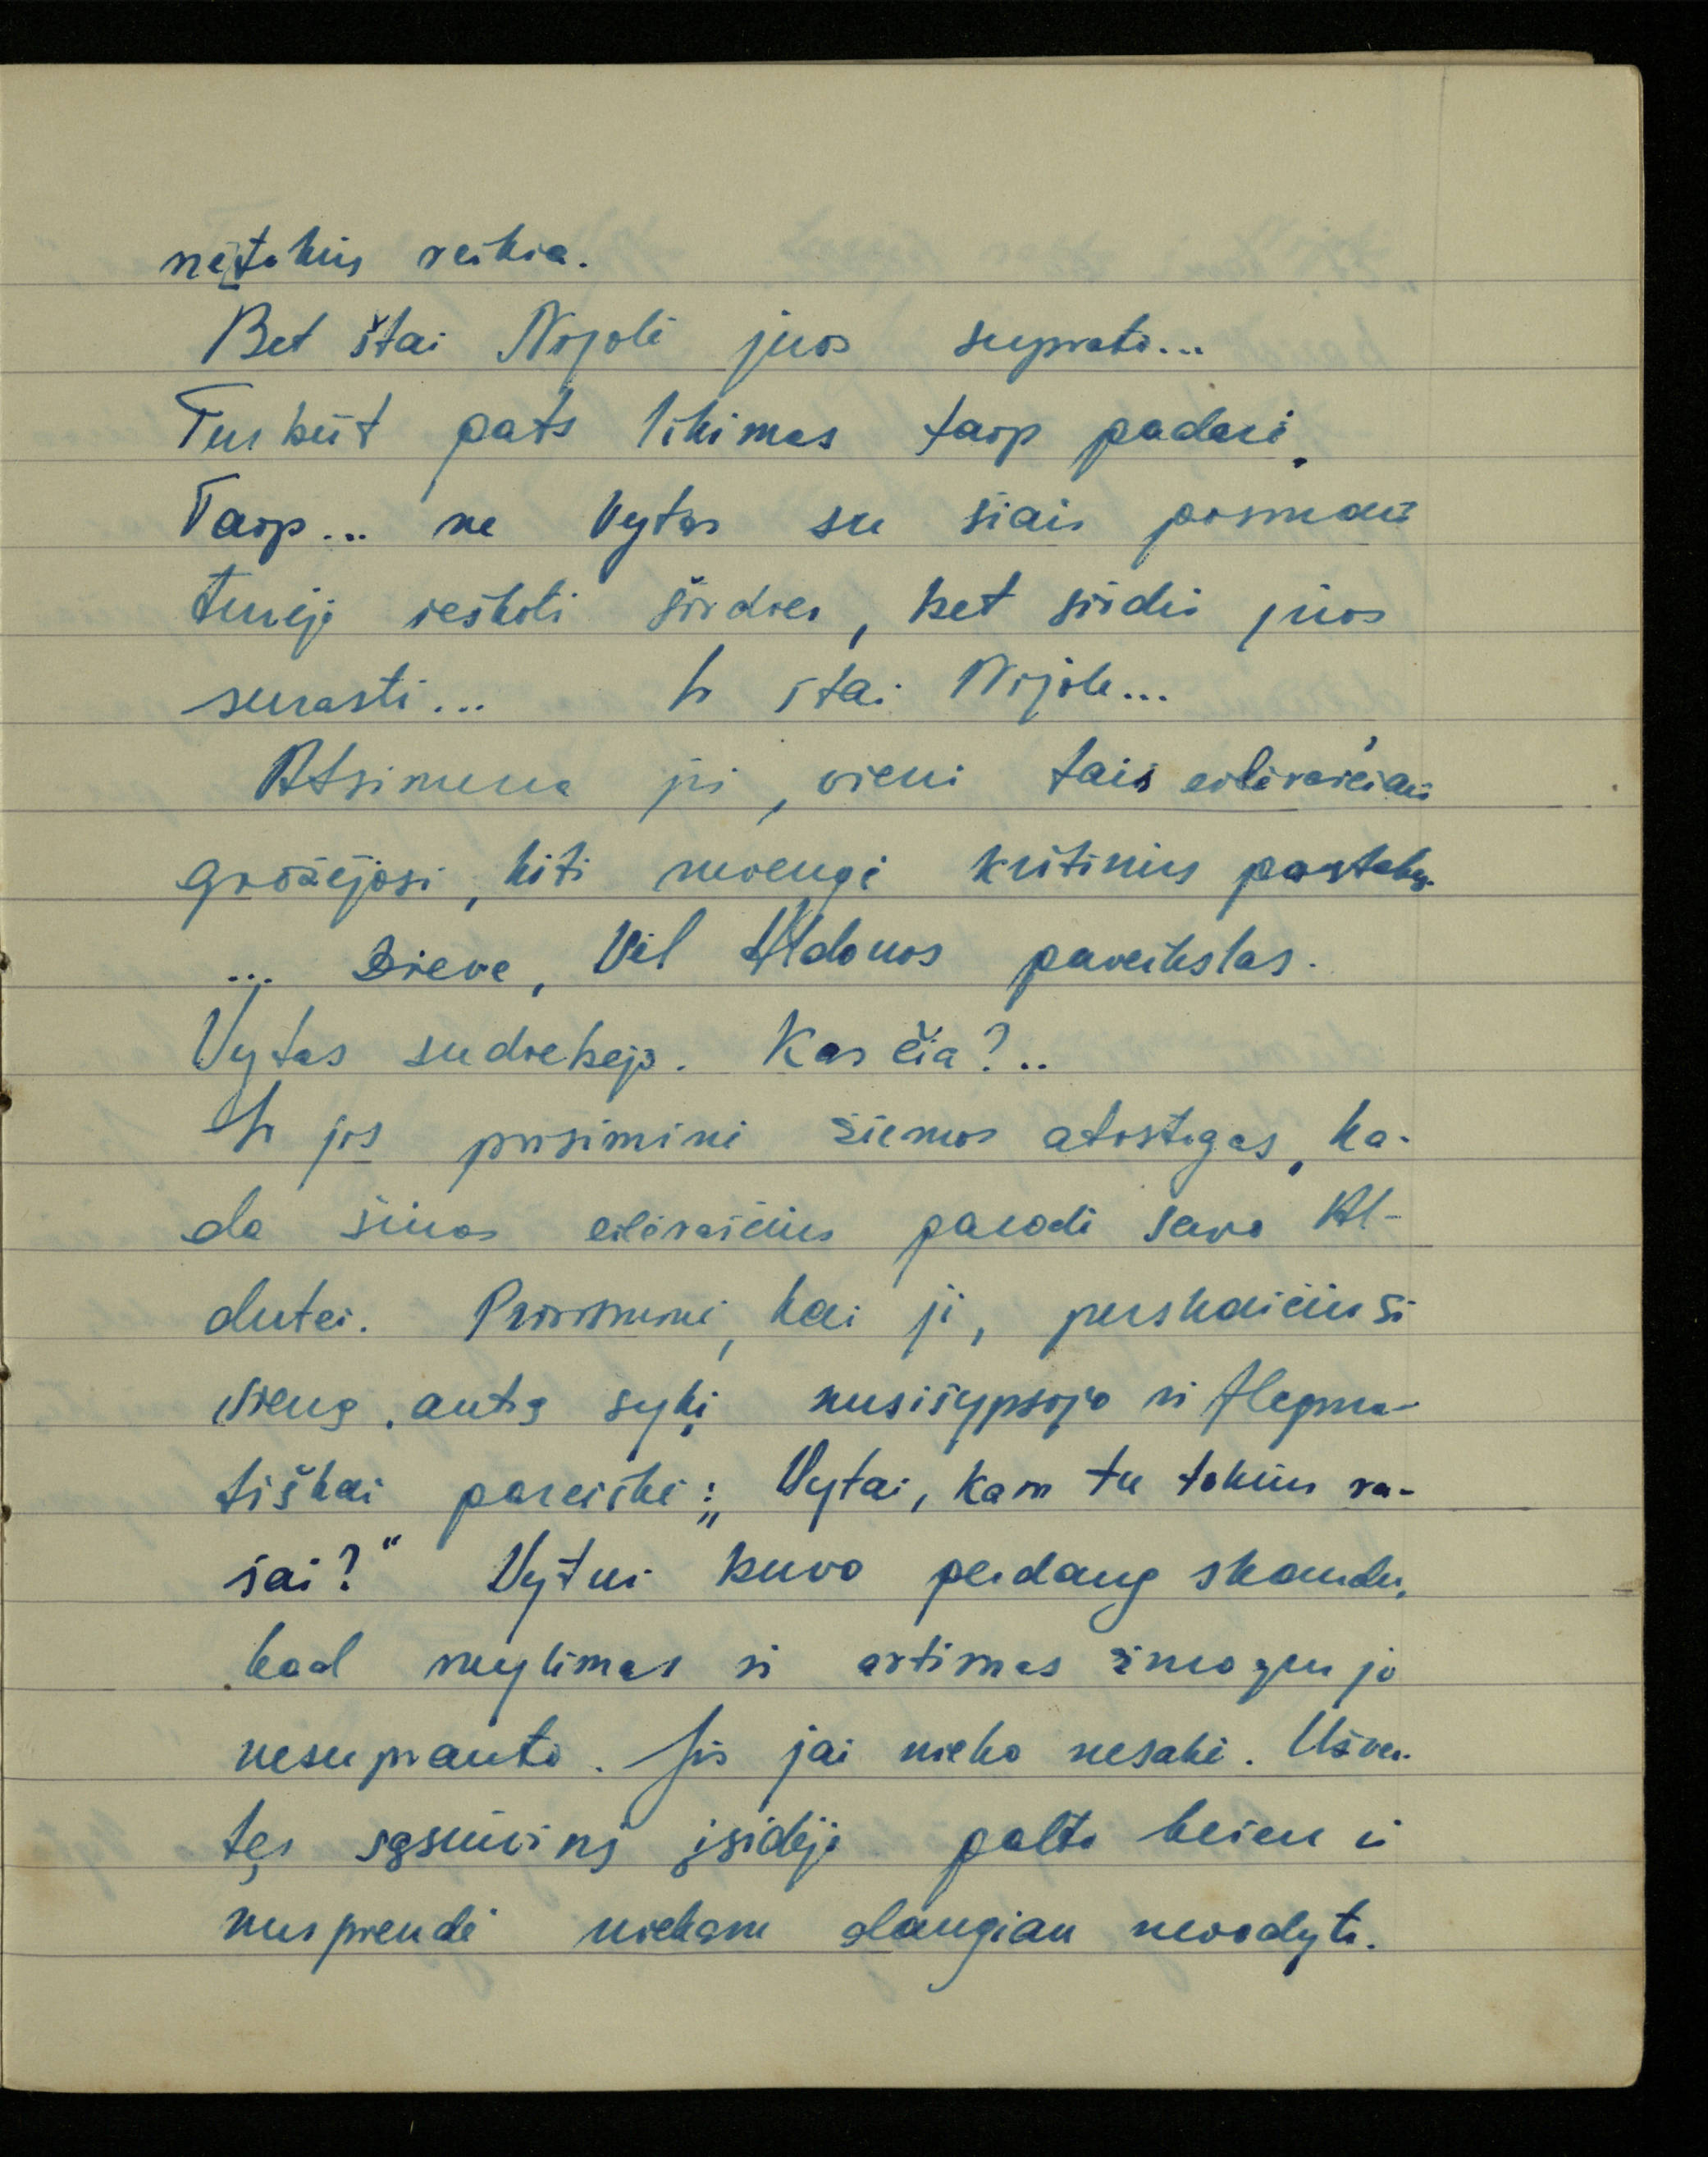 ne tokius reikia.
Bet štai Nijolė juos suprato...
Turbūt pats likimas taip padarė.
Taip... ne Vytas su šiais posmais
turėjo ieškoti širdies, bet širdis juos
surasti... Ir štai Nijolė...
Atsimena jis, vieni tais eilėraščiais
grožėjosi, kiti nerengė kritinius pastabų.
... Dieve, Vėl Aldonos paveikslas.
Vytas sudrebėjo. Kas čia?..
Ir jis prisiminė žiemos atostogas, ka-
da šiuos eilėraščius parodė savo Al-
dutei. Prisiminė, kai ji, perskaičiusi
vieną, antrą sykį nusišypsojo ir flegma-
tiškai pareiškė: „Vytai, kam tu tokius ra-
šai?“ Vytui buvo perdaug skaudu,
kad mylimas ir artimas žmogus jo
nesupranta. Jis jai nieko nesakė. Užver-
tęs sąsiuvinį įsidėjo palto kišen ir
nusprendė niekam daugiau nerodyti.